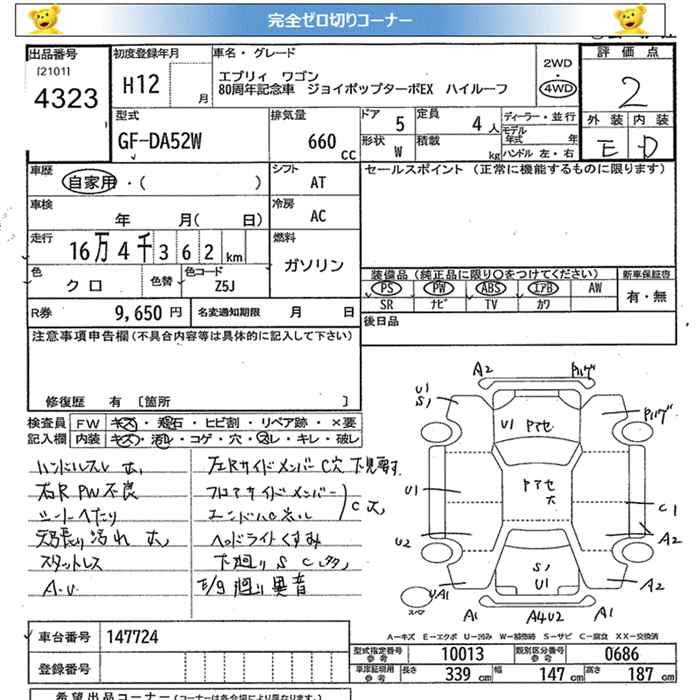 完全ゼロ切りコーナー
出品番号
[2101]
4323
初度登録年月
H12
月
車名・グレード
エブリィ ワゴン
80周年記念車 ジョイポップターボEX ハイルーフ
2WD
4WD
評価点
2
外装 内装
E D
型式
GF-DA52W
排気量
660
cc
ドア
5
定員
4人
形状
W
積載
kg
ディーラー・並行
モデル年式 年
ハンドル 左・右
車歴
自家用・( )
シフト
AT
セールスポイント (正常に機能するものに限ります)
車検
年 月( 日)
冷房
AC
走行
16万4千362km
燃料
ガソリン
色
クロ
色替
色コード
Z5J
装備品(純正品に限り○をつけてください)
新車保証書
PS PW ABS エアB AW
SR ナビ TV カワ
有・無
R券
9,650円
名変通知期限 月 日
後日品
注意事項申告欄(不具合内容等は具体的に記入して下さい)
修復歴 有 [箇所 ]
検査員記入欄
FW キズ・飛石・ヒビ割・リペア跡・×要
内装 キズ・汚レ・コゲ・穴・スレ・キレ・破レ
ハンドルスレ 大
左Rサイドメンバー C穴 下見要す
右R PW不良
フロアサイドメンバー
シートへたり
C大
天張り汚れ 大
ヘッドライトくすみ
スタットレス
下廻り S C
A.U.
E/g廻り異音
A2
U1
S1
U1
U2
UA1
A1
A4U2
A1
A2
A2
C1
S1
U1
A-キズ E-エクボ U-凹み W-補修跡 S-サビ C-腐食 XX-交換済
車台番号
147724
登録番号
型式指定番号参考
10013
類別区分番号参考
0686
車庫証明用参考
長さ 339cm
幅 147cm
高さ 187cm
希望出品コーナー(コーナーは各会場により異なります。)